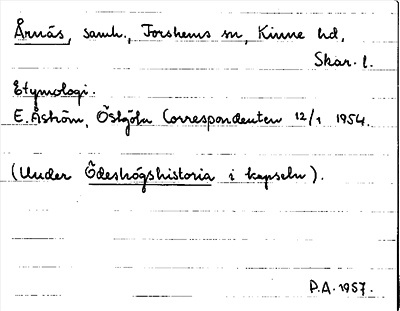 Årnäs, samh., Forshems sn, Kinne hd,
Skar. l.
Etymologi.
E. Åström, Östgöten Correspondenten 12/1 1954.
(Under Ödeshögshistoria i kapseln).
P.A. 1957.